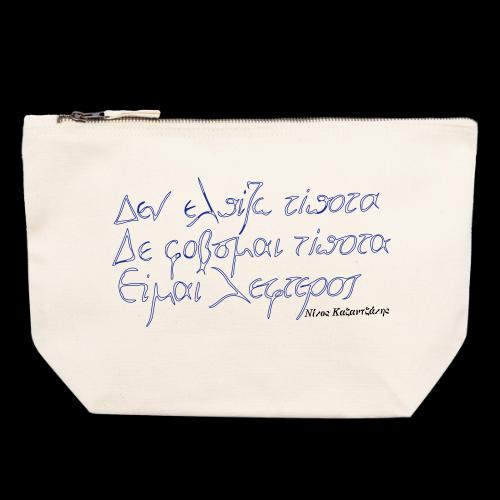 Δεν ελπίζω τίποτα
Δε φοβούμαι τίποτα
Είμαι λεφτερος
Νίκος Καζαντζάκης